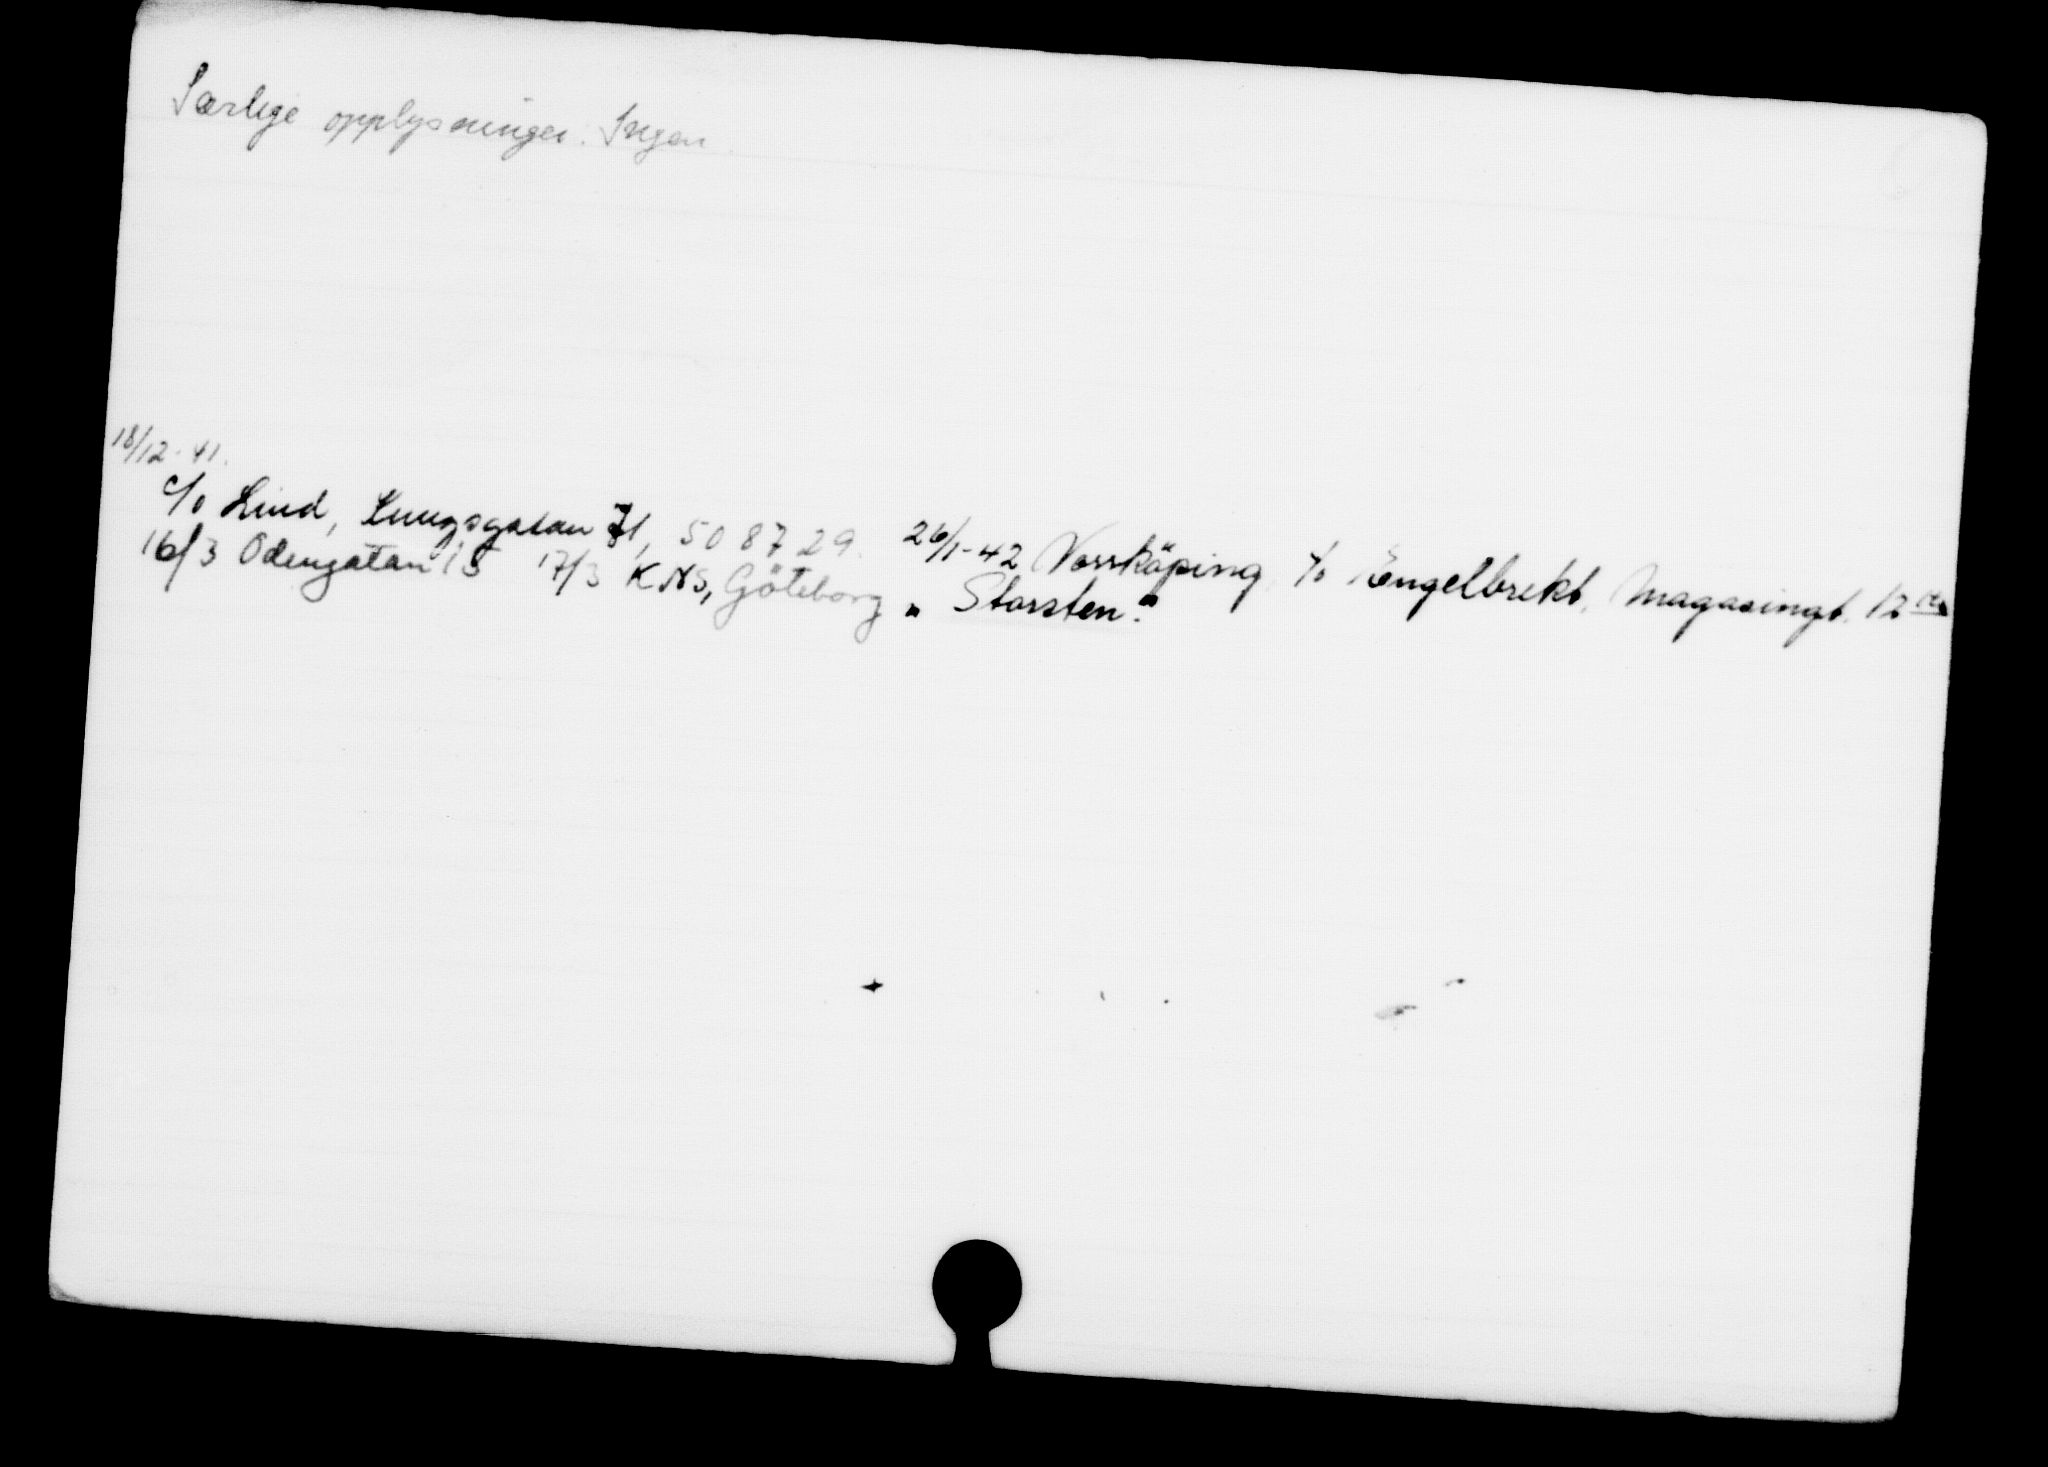 Særlige opplysninger. Ingen
18/12-41.
c/o Lind, Kungsgatan 71, 508729. 26/1-42 Norrköping, c/o Engelbrekt, Magasingt. 12
16/3 Odengatan 15 17/3 KNS, Göteborg „Storsten."